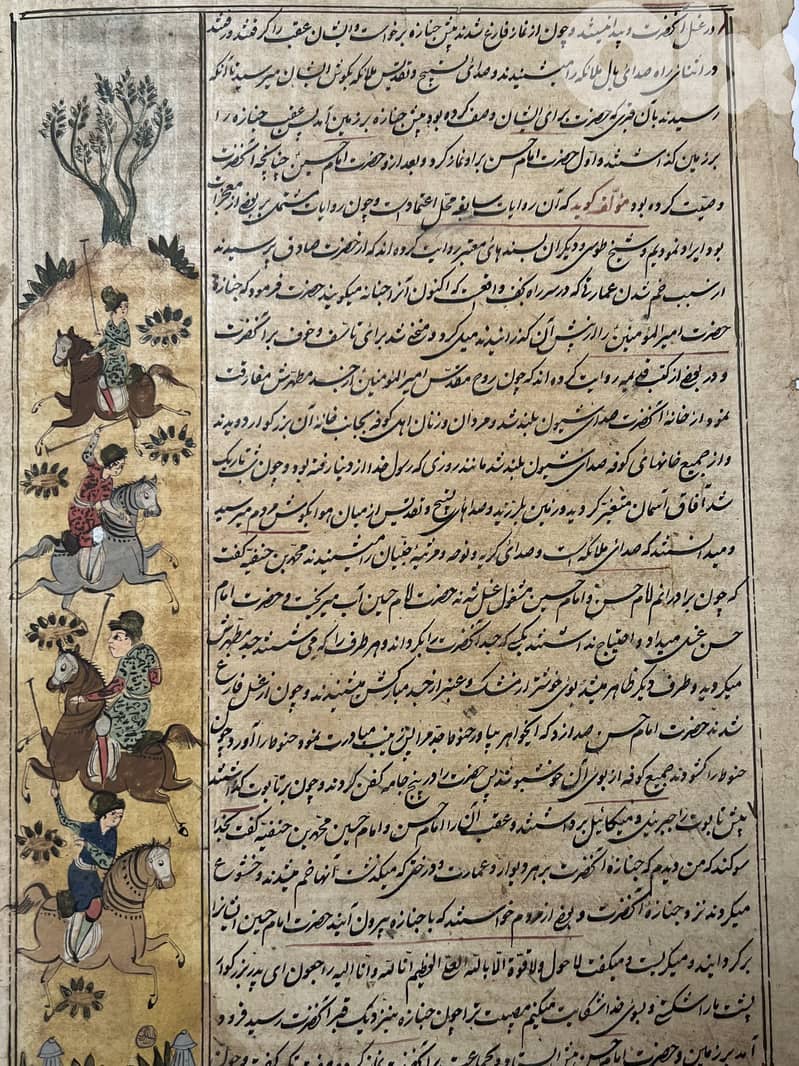 در غسل آنحضرت و پیدا نمیشد و چون از نماز فارغ شدند پیش جنازه برخواست و ایشان عقب را گرفتند و رفتند
در اثنای راه صدای بال ملائکه را میشنیدند و صدای تسبیح و تقدیس ملائکه بگوش ایشان میرسید تا آنکه
رسیدند بآن قبری که حضرت برای ایشان وصف کرده بود پیش جنازه بر زمین آمد پس عقب جنازه را
بر زمین گذاشتند و اول حضرت امام حسن بر او نماز کرد و بعد از او حضرت امام حسین چنانچه آنحضرت
وصیت کرده بود مؤلف گوید که آن روایات سابقه محل اعتماد است و چون روایات مشتمل بر بعضی از معجزات
بود ایراد نمودیم و شیخ طوسی و دیگران بسندهای معتبر روایت کرده اند که از حضرت صادق پرسیدند
از سبب خم شدن عمارتی که در سر راه نجف واقعست که اکنون آنرا حنانه میگویند حضرت فرمود که جنازه
حضرت امیر المؤمنین را از پیش آن گذرانیدند میل کرد و منحنی شد برای تأسف و خوف بر آنحضرت
و در بعضی از کتب قدیمه روایت کرده اند که چون روح مقدس امیر المؤمنین از جسد مطهرش مفارقت
نمود از خانه آنحضرت صدای شیون بلند شد و مردان و زنان اهل کوفه بجانب خانه آن بزرگوار دویدند
و از جمیع خانهای کوفه صدای شیون بلند شد مانند روزی که رسول خدا از دنیا رفته بود و چون شب تاریک
شد آفاق آسمان متغیر گردید و زمین بلرزید و صداهای تسبیح و تقدیس از میان هوا بگوش مردم میرسید
و میدانستند که صدای ملائکه است و صدای گریه و نوحه و مرثیه جنیان را میشنیدند محمد بن حنفیه گفت
که چون برادرانم امام حسن و امام حسین مشغول غسل شدند حضرت امام حسین آب میریخت و حضرت امام
حسن غسل میداد و احتیاج نداشتند بکسی که جسد آنحضرت را بگرداند و هر طرف را که می شستند جسد مطهرش
میگردید و طرف دیگر ظاهر میشد بوی خوشتر از مشک و عنبر از جسد مبارکش میشنیدند و چون از غسل فارغ
شدند حضرت امام حسن صدا زد که ایخواهر بیاور حنوط جدم را پس زینب مبادرت نمود و حنوط را آورد چون
حنوط را گشودند جمیع کوفه از بوی آن خوشبو شد پس حضرت را در پنج جامه کفن کردند و چون بر تابوت گذاشتند
پیش تابوت را جبرئیل و میکائیل برداشتند و عقب آنرا امام حسن و امام حسین محمد بن حنفیه گفت بخدا
سوگند که من دیدم که جنازه آنحضرت بر هر دیوار و عمارت و درختی که میگذشت آنها خم میشدند و خشوع
میکردند نزد جنازه آنحضرت و بعضی از مردم خواستند که با جنازه بیرون آیند حضرت امام حسین ایشانرا
برگردانید و میگریست و میگفت لا حول ولا قوة الا بالله العلی العظیم انا لله وانا الیه راجعون ای پدر بزرگوار
پشت ما را شکستی و بسوی خدا شکایت میکنیم مصیبت ترا چون جنازه بنزدیک قبر آنحضرت رسید فرود
آمد بر زمین و حضرت امام حسن پیش ایستاد و بجماعت بر آنحضرت نماز کرد